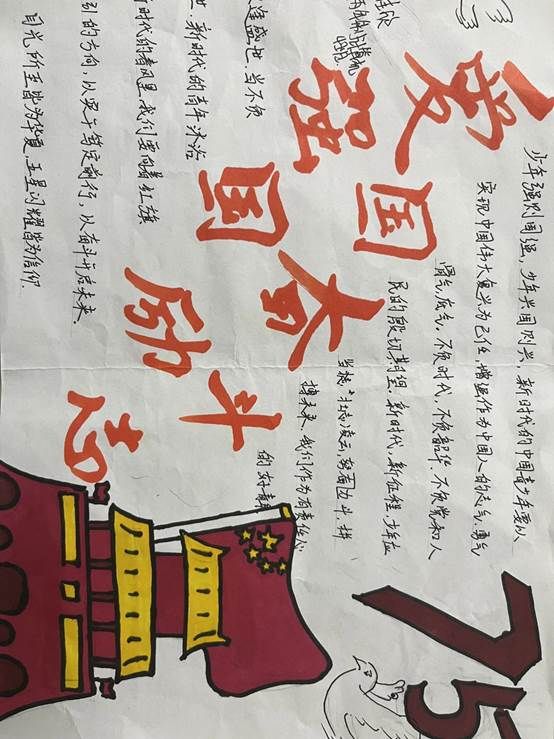 爱国奋斗
强国励志
少年强则国强,少年兴国则兴,新时代的中国青少年要以
实现中国伟大复兴为己任,增强作为中国人的志气、勇气
骨气、底气,不负时代,不负韶华,不负党和人
民的殷切期望,新时代,新征程,少年应
搏未来,我们作为有责任心
的好青
逢盛世,当不负
世,新时代的青年沐浴
时代的春风里,我们要向着红旗
引的方向,以实干笃定前行,以奋斗开启未来。
目光所至皆为华夏,五星闪耀皆为信仰
75